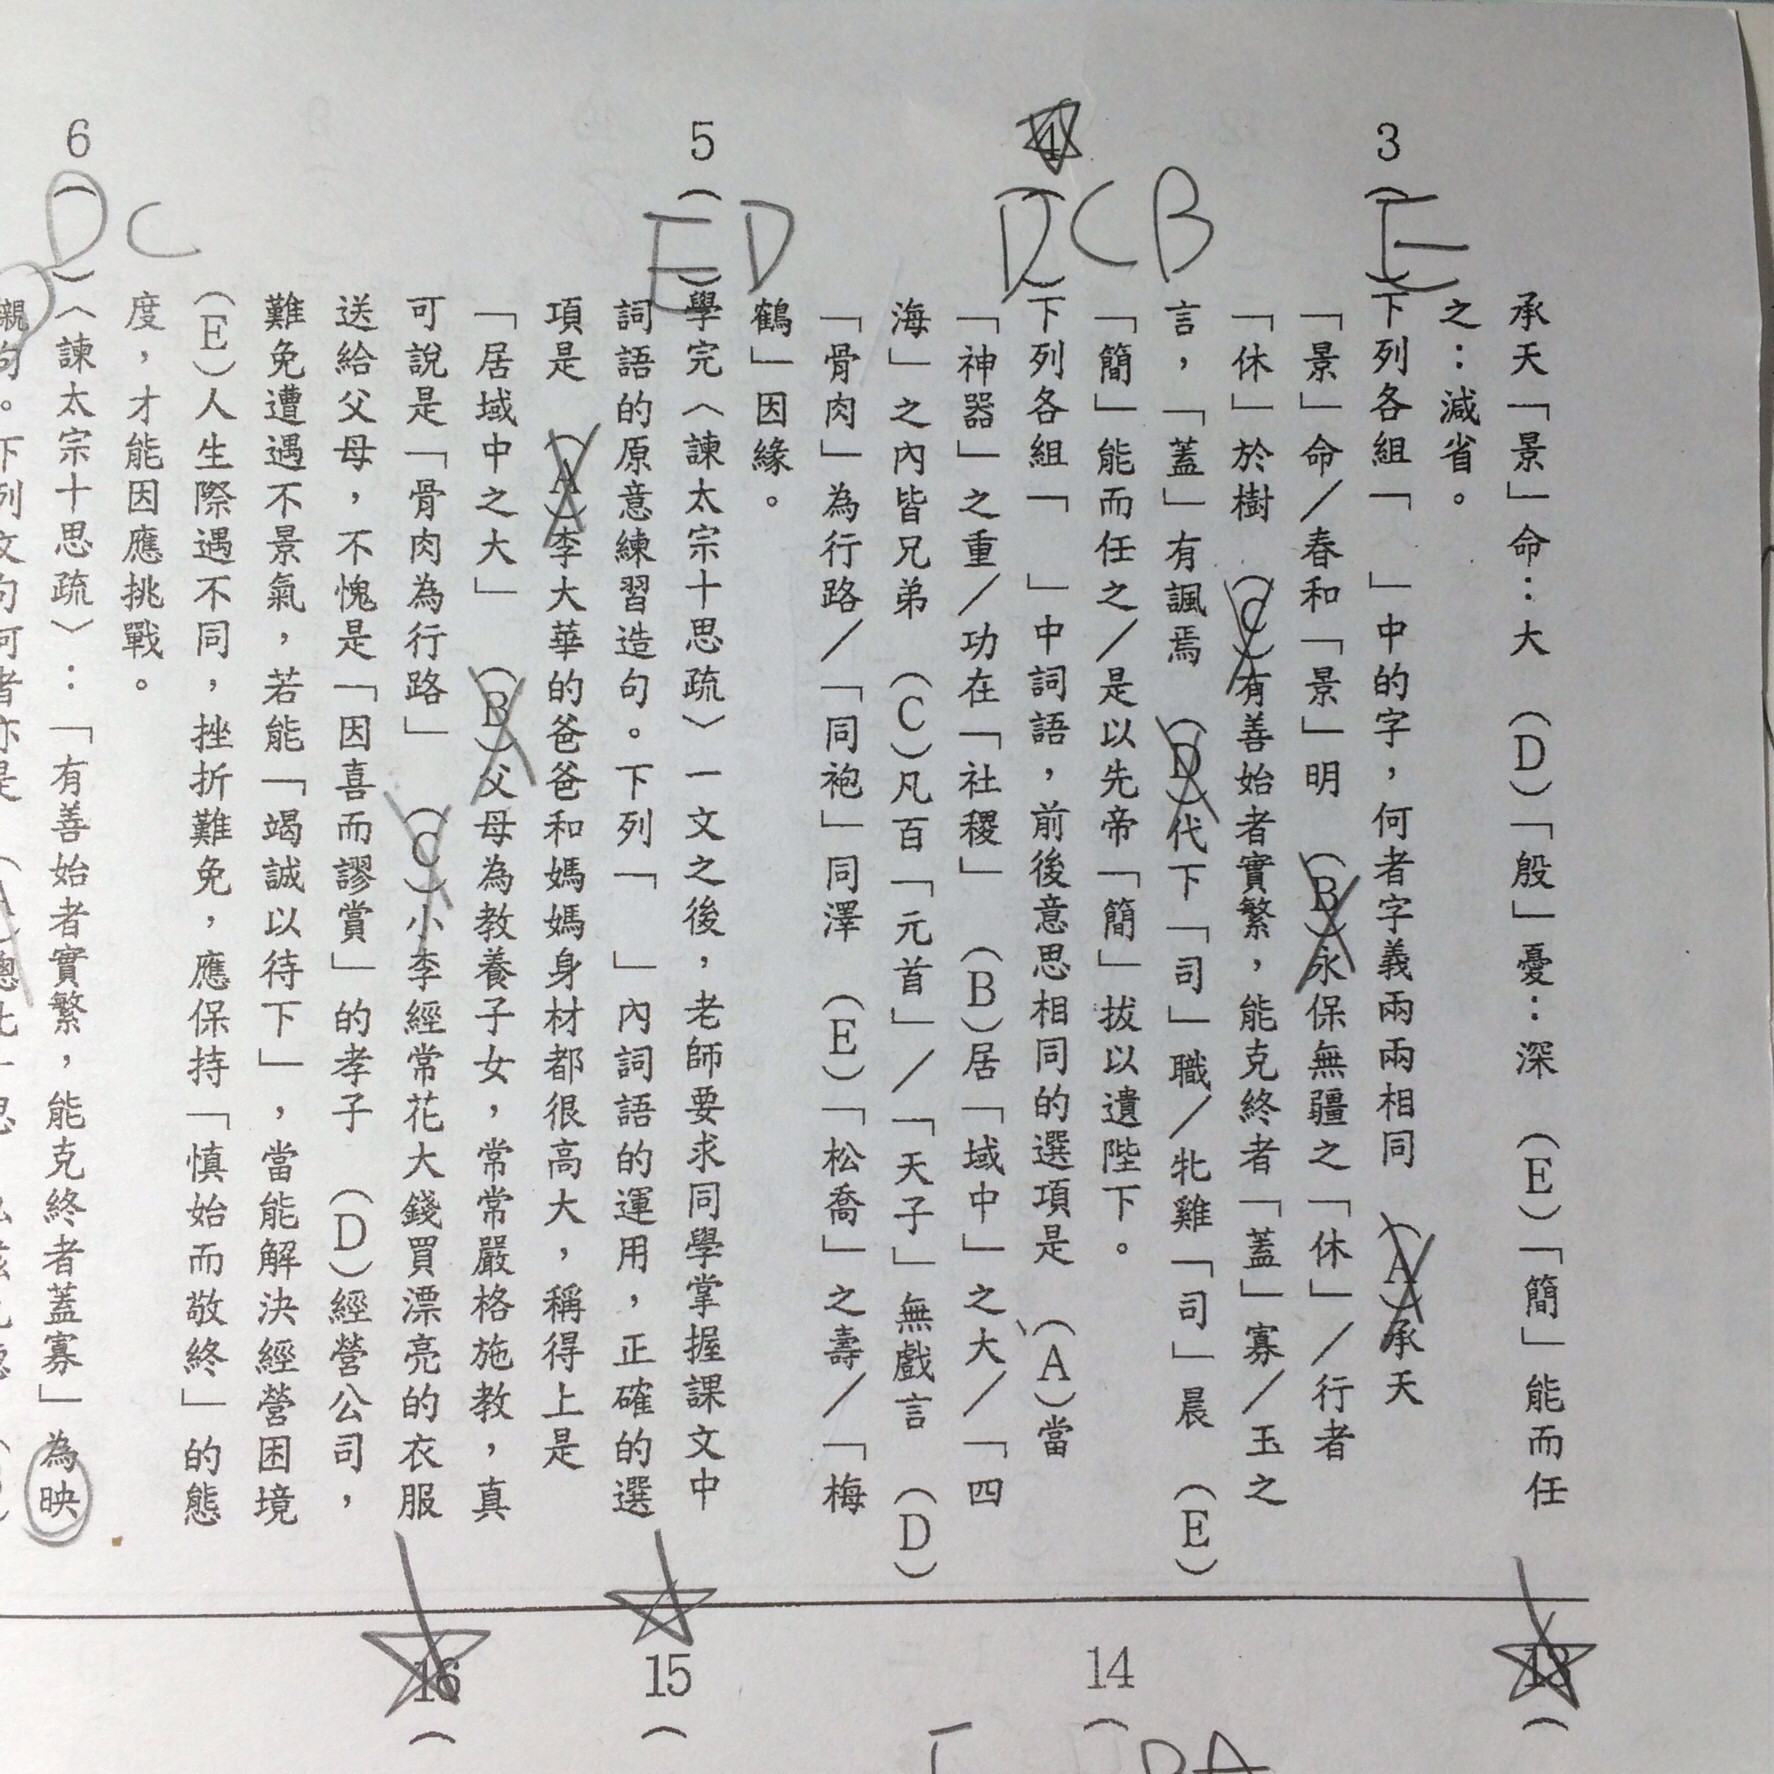 承天「景」命：大　(D)「殷」憂：深　(E)「簡」能而任
之：減省。
3 (E)下列各組「　」中的字，何者字義兩兩相同　(A)承天
「景」命／春和「景」明　(B)永保無疆之「休」／行者
「休」於樹　(C)有善始者實繁，能克終者「蓋」寡／玉之
言，「蓋」有諷焉　(D)代下「司」職／牝雞「司」晨　(E)
「簡」能而任之／是以先帝「簡」拔以遺陛下。
4 (DCB)下列各組「　」中詞語，前後意思相同的選項是　(A)當
「神器」之重／功在「社稷」　(B)居「域中」之大／「四
海」之內皆兄弟　(C)凡百「元首」／「天子」無戲言　(D)
「骨肉」為行路／「同袍」同澤　(E)「松喬」之壽／「梅
鶴」因緣。
5 (ED)學完〈諫太宗十思疏〉一文之後，老師要求同學掌握課文中
詞語的原意練習造句。下列「　」內詞語的運用，正確的選
項是　(A)李大華的爸爸和媽媽身材都很高大，稱得上是
「居域中之大」　(B)父母為教養子女，常常嚴格施教，真
可說是「骨肉為行路」　(C)小李經常花大錢買漂亮的衣服
送給父母，不愧是「因喜而謬賞」的孝子　(D)經營公司，
難免遭遇不景氣，若能「竭誠以待下」，當能解決經營困境
(E)人生際遇不同，挫折難免，應保持「慎始而敬終」的態
度，才能因應挑戰。
6 (DC)〈諫太宗十思疏〉：「有善始者實繁，能克終者蓋寡」為映
襯句。下列文句何者亦是
13 (
14 (
15 (
16 (